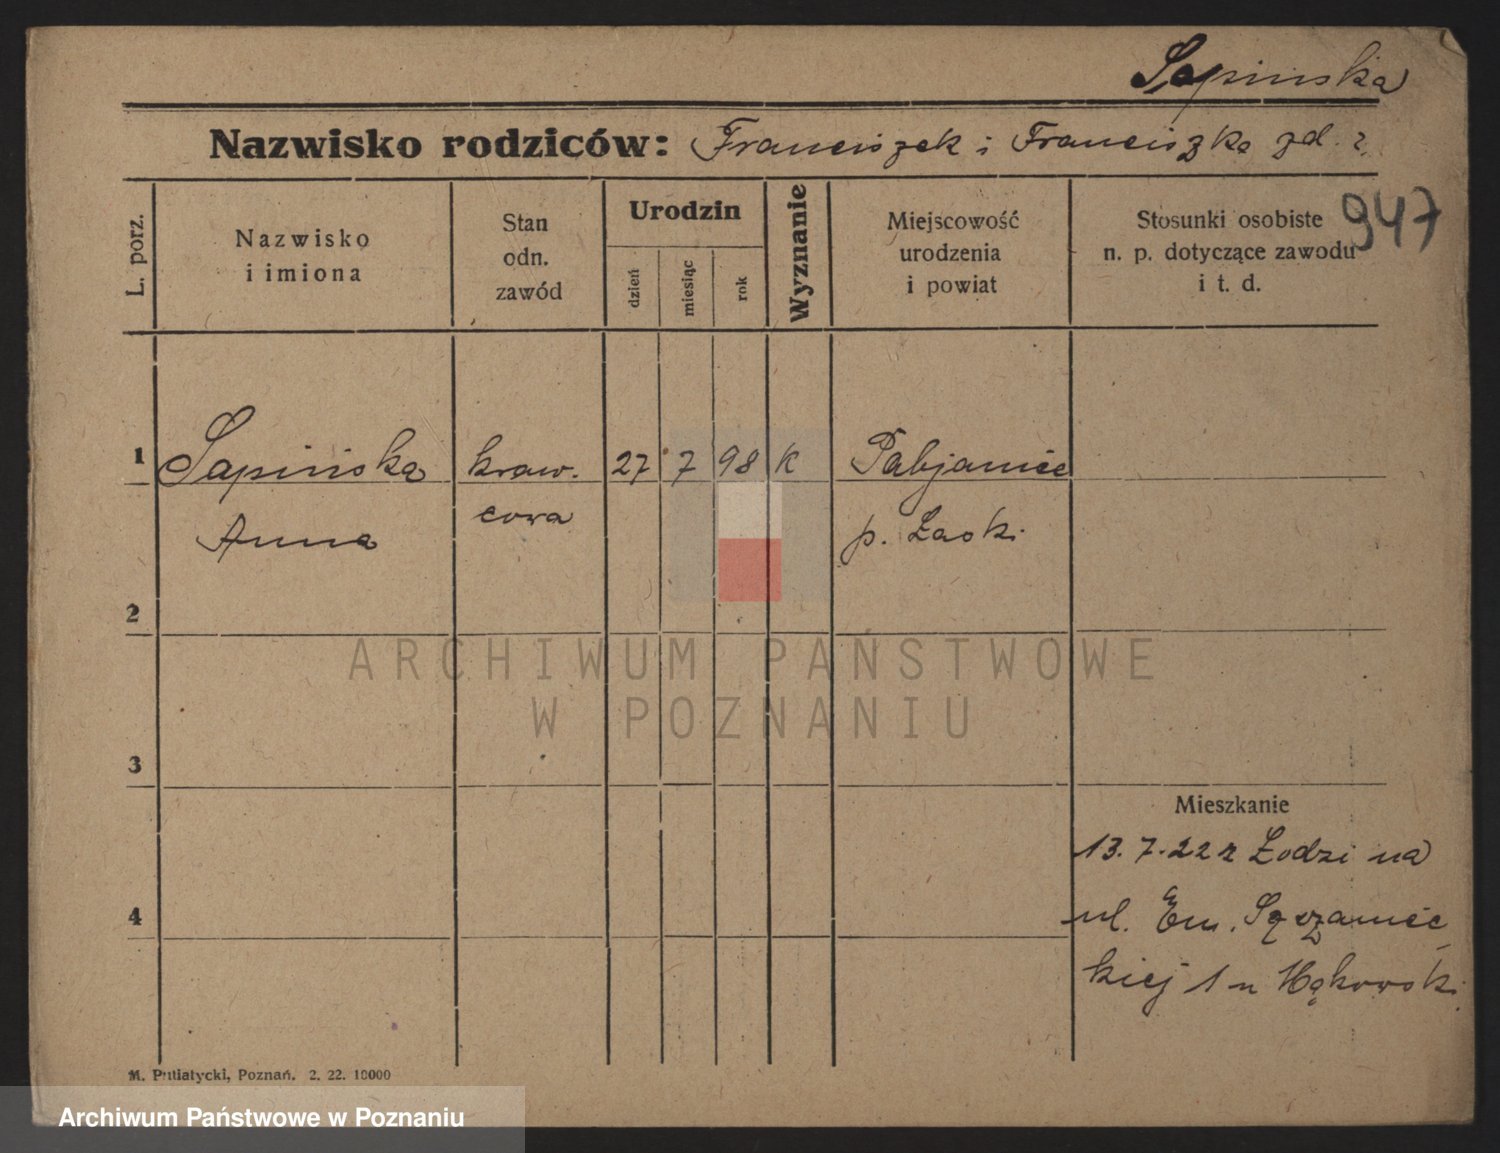 Sapińska
Nazwisko rodziców: Franciszek i Franciszka zd. ?
947
L. porz.
Nazwisko
i imiona
Stan
odn.
zawód
Urodzin
dzień
miesiąc
rok
Wyznanie
Miejscowość
urodzenia
i powiat
Stosunki osobiste
n. p. dotyczące zawodu
i t. d.
1 Sapińska kraw. 27 7 98 K Pabjanice
Anna cowa p. Łaski
2
3
Mieszkanie
13. 7. 22 z Łodzi na
4
ul. Em. Sczaniec
kiej 1 u
M. Putiatycki, Poznań. 2. 22. 10000
ARCHIWUM PAŃSTWOWE
W POZNANIU
Archiwum Państwowe w Poznaniu